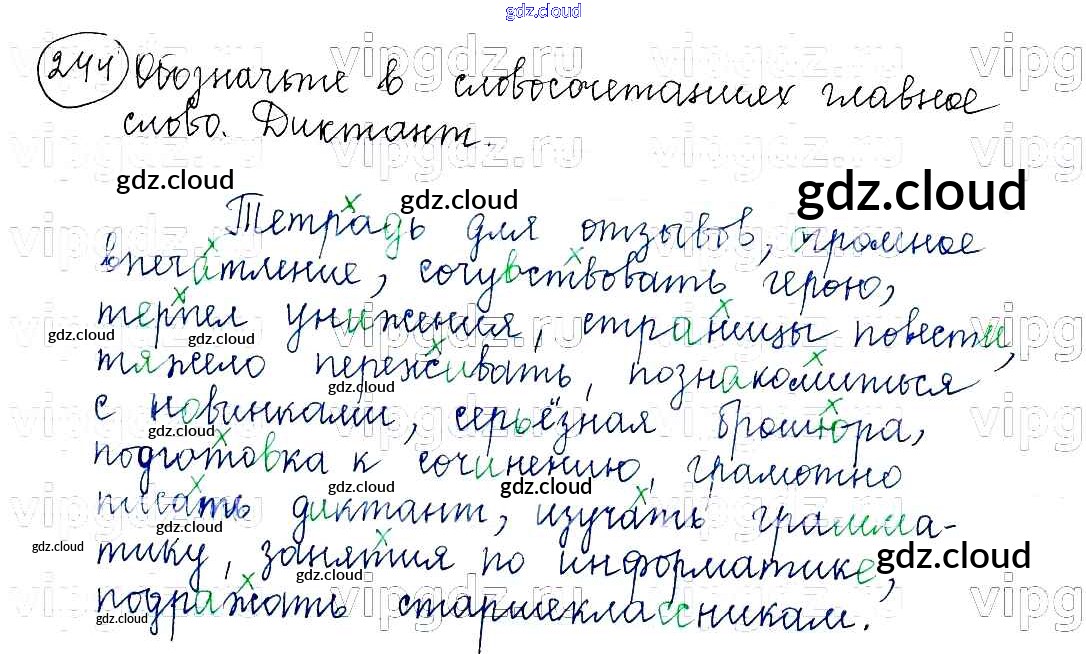 gdz.cloud
244 Обозначьте в словосочетаниях главное
слово. Диктант.
gdz.cloud gdz.cloud gdz.cloud
Тетрадь для отзывов, огромное
впечатление, сочувствовать герою,
терпел унижения, страницы повести,
gdz.cloud gdz.cloud
тяжело переживать, познакомиться
gdz.cloud
с новинками, серьёзная брошюра,
gdz.cloud gdz.cloud
подготовка к сочинению, грамотно
gdz.cloud gdz.cloud
писать диктант, изучать грамма-
gdz.cloud gdz.cloud
тику, занятия по информатике,
gdz.cloud
подражать старшеклассникам.
gdz.cloud
vipgdz.ru